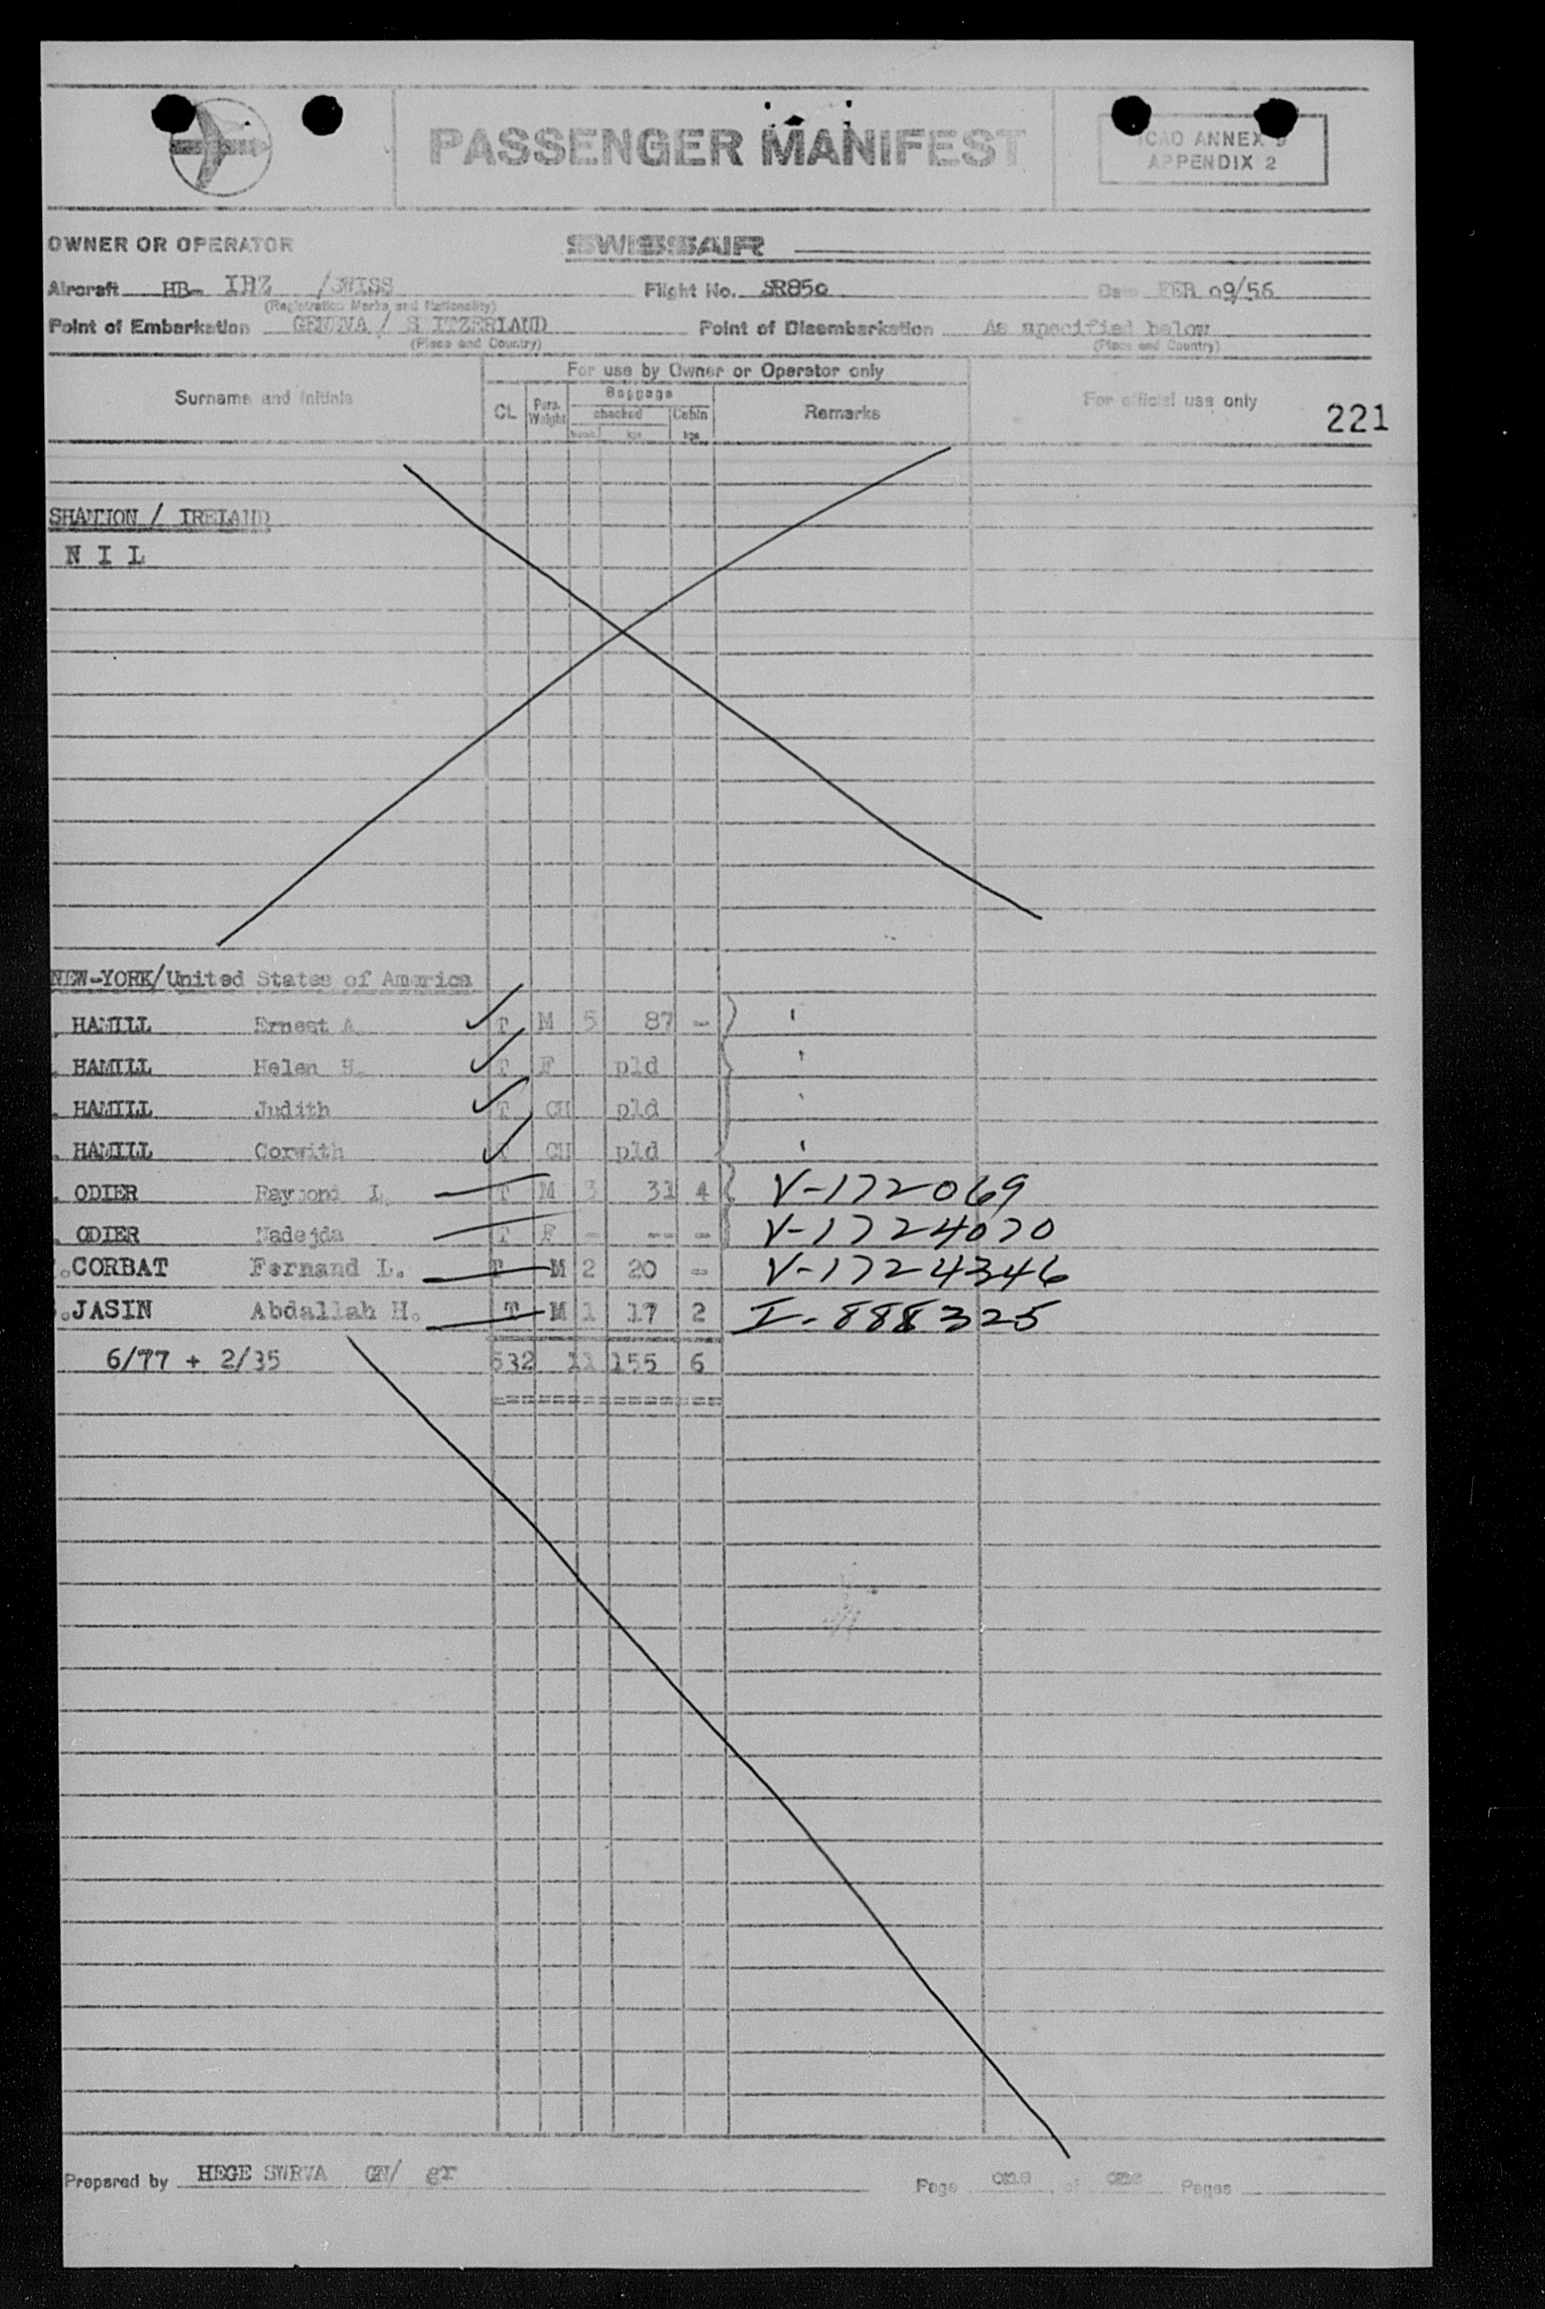 PASSENGER MANIFEST
ICAO ANNEX 9
APPENDIX 2
OWNER OR OPERATOR SWISSAIR
Aircraft HB- IBZ /SWISS Flight No. SR850 Date FEB 09/56
(Registration Marks and Nationality)
Point of Embarkation GENEVA / S ITZERLAND Point of Disembarkation As specified below
(Place and Country) (Place and Country)
For use by Owner or Operator only
Surname and Initials CL Pers. Weight Baggage checked kgs Cabin kgs Remarks For official use only
221
SHANNON / IRELAND
N I L
NEW-YORK/United States of America
. HAMILL Ernest A. T M 5 87 -
. HAMILL Helen H. T F pld
. HAMILL Judith T CH pld
. HAMILL Corwith T CH pld
. ODIER Raymond L. T M 3 31 4 V-172069
. ODIER Nadejda T F - -- - V-1724070
.CORBAT Fernand L. T M 2 20 - V-1724346
.JASIN Abdallah H. T M 1 17 2 I-888325
6/77 + 2/35 532 11 155 6
Prepared by HEGE SWRVA GN/ gr Page one of one Pages